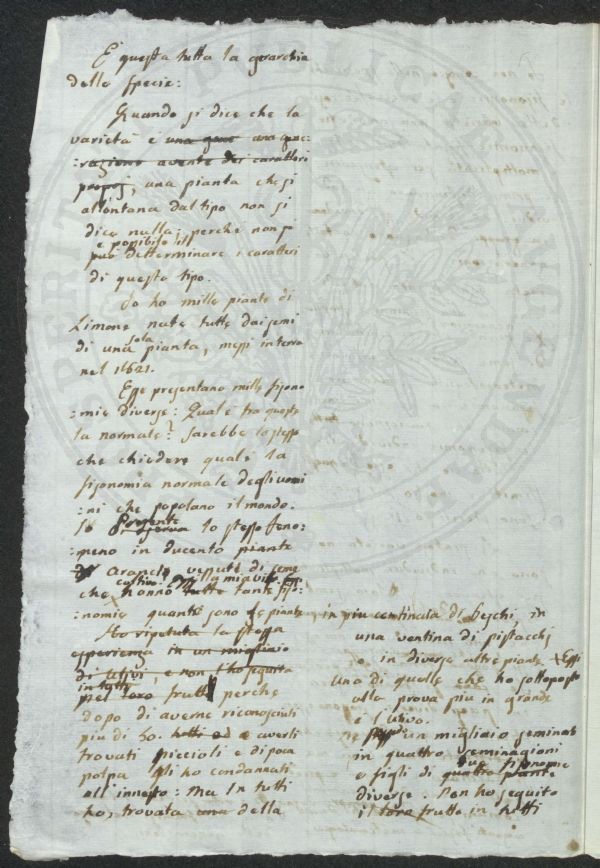 E questa tutta la gerarchia
delle specie:
Quando si dice che la
varietà è una gene una gene-
:razione avente dei caratteri
proprj, una pianta che si
allontana dal tipo non si
dice nulla; perchè non si
è possibile il
può determinare i caratteri
di questo tipo.
Io ho mille piante di
Limone nate tutte dai semi
di una sola pianta, messi in terra
nel 1821.
Esse presentano mille fisono
:mie diverse: Qual'è tra queste
la normale? Sarebbe lo stesso
che chiedere quale la
fisonomia normale degli uomi
:ni che popolano il mondo.
Presenta
Io osserva lo stesso feno:
:meno in ducento piante
di Arancio venute di seme
coltivo
che hanno tutte tante fiso:
:nomie quante sono le piante
Ho ripetuta la stessa
esperienza in un migliajo
di ulivi, e non l'ho seguita
in tutti
nel loro frutto perchè
dopo di averne riconosciuti
più di 50. tutti ed e averli
trovati piccioli e di poca
polpa gli ho condannati
all'innesto: Ma in tutti
ho, trovata una della
in più centinaia di Peschi, in
una ventina di pistacchj
e in diverse altre piante + Essi
Una di quelle che ho sottoposto
alla prova più in grande
è l'ulivo.
un migliajo seminati
in quattro seminagioni
due fisonomie
e figli di quattro piante
diverse. Non ho seguito
il loro frutto in tutti